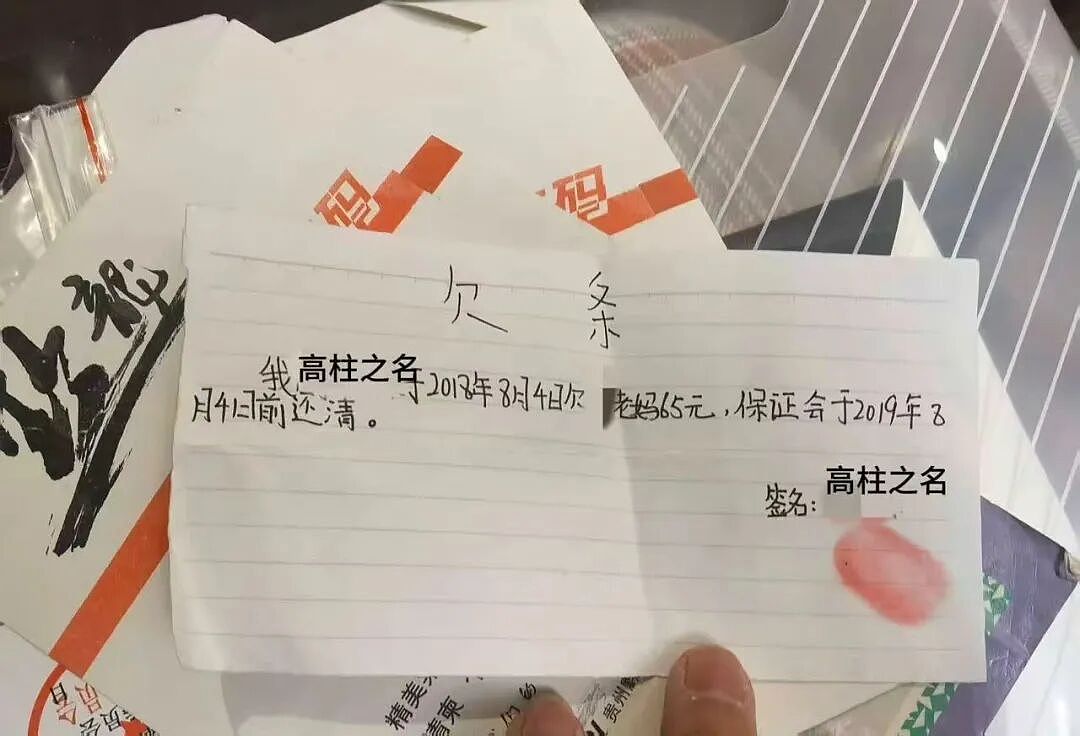 码
码
欠 条
我高柱之名于2018年8月4日欠老妈65元,保证会于2019年8
月4日前还清。
签名:高柱之名
精美
请柬
贵州